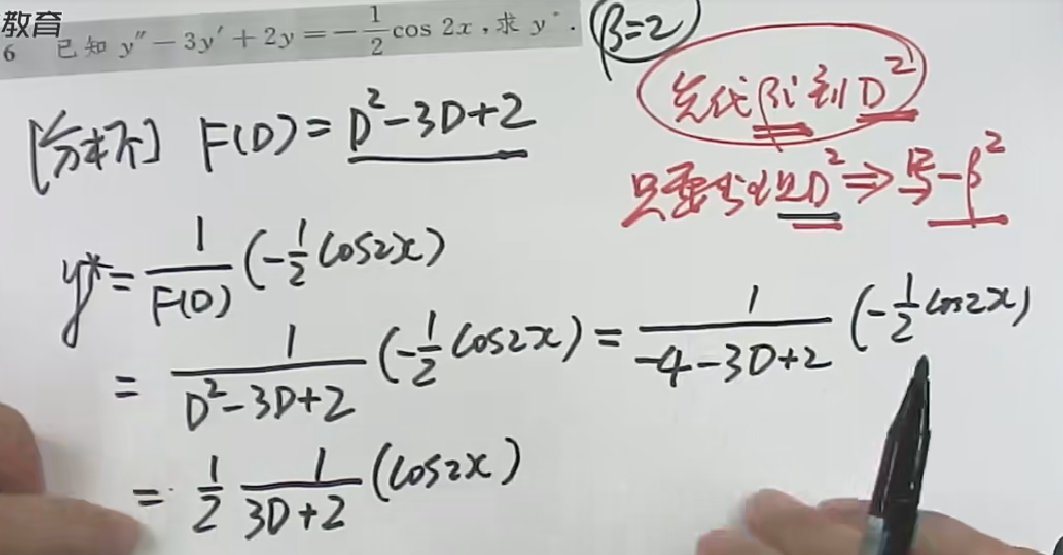 教育
6 已知 y″ − 3y′ + 2y = −1/2 cos 2x , 求 y* .
(β=2)
先代 βi 到 D²
[分析] F(D) = D² − 3D + 2
D² ⇒ 写 −β²
y* = 1/F(D) (−1/2 cos2x)
= 1/(D² − 3D + 2) (−1/2 cos2x) = 1/(−4 − 3D + 2) (−1/2 cos2x)
= 1/2 1/(3D + 2) (cos2x)